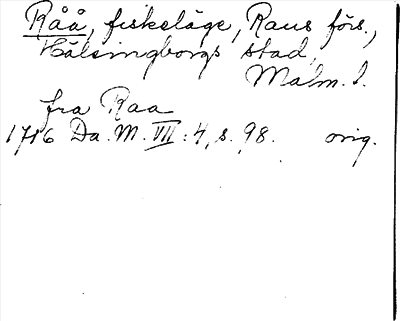 Råå, fiskeläge, Raus förs.,
Hälsingborgs stad,
Malm. l.
fra Raa
1716 Da. M. VII: 4, s. 98. orig.